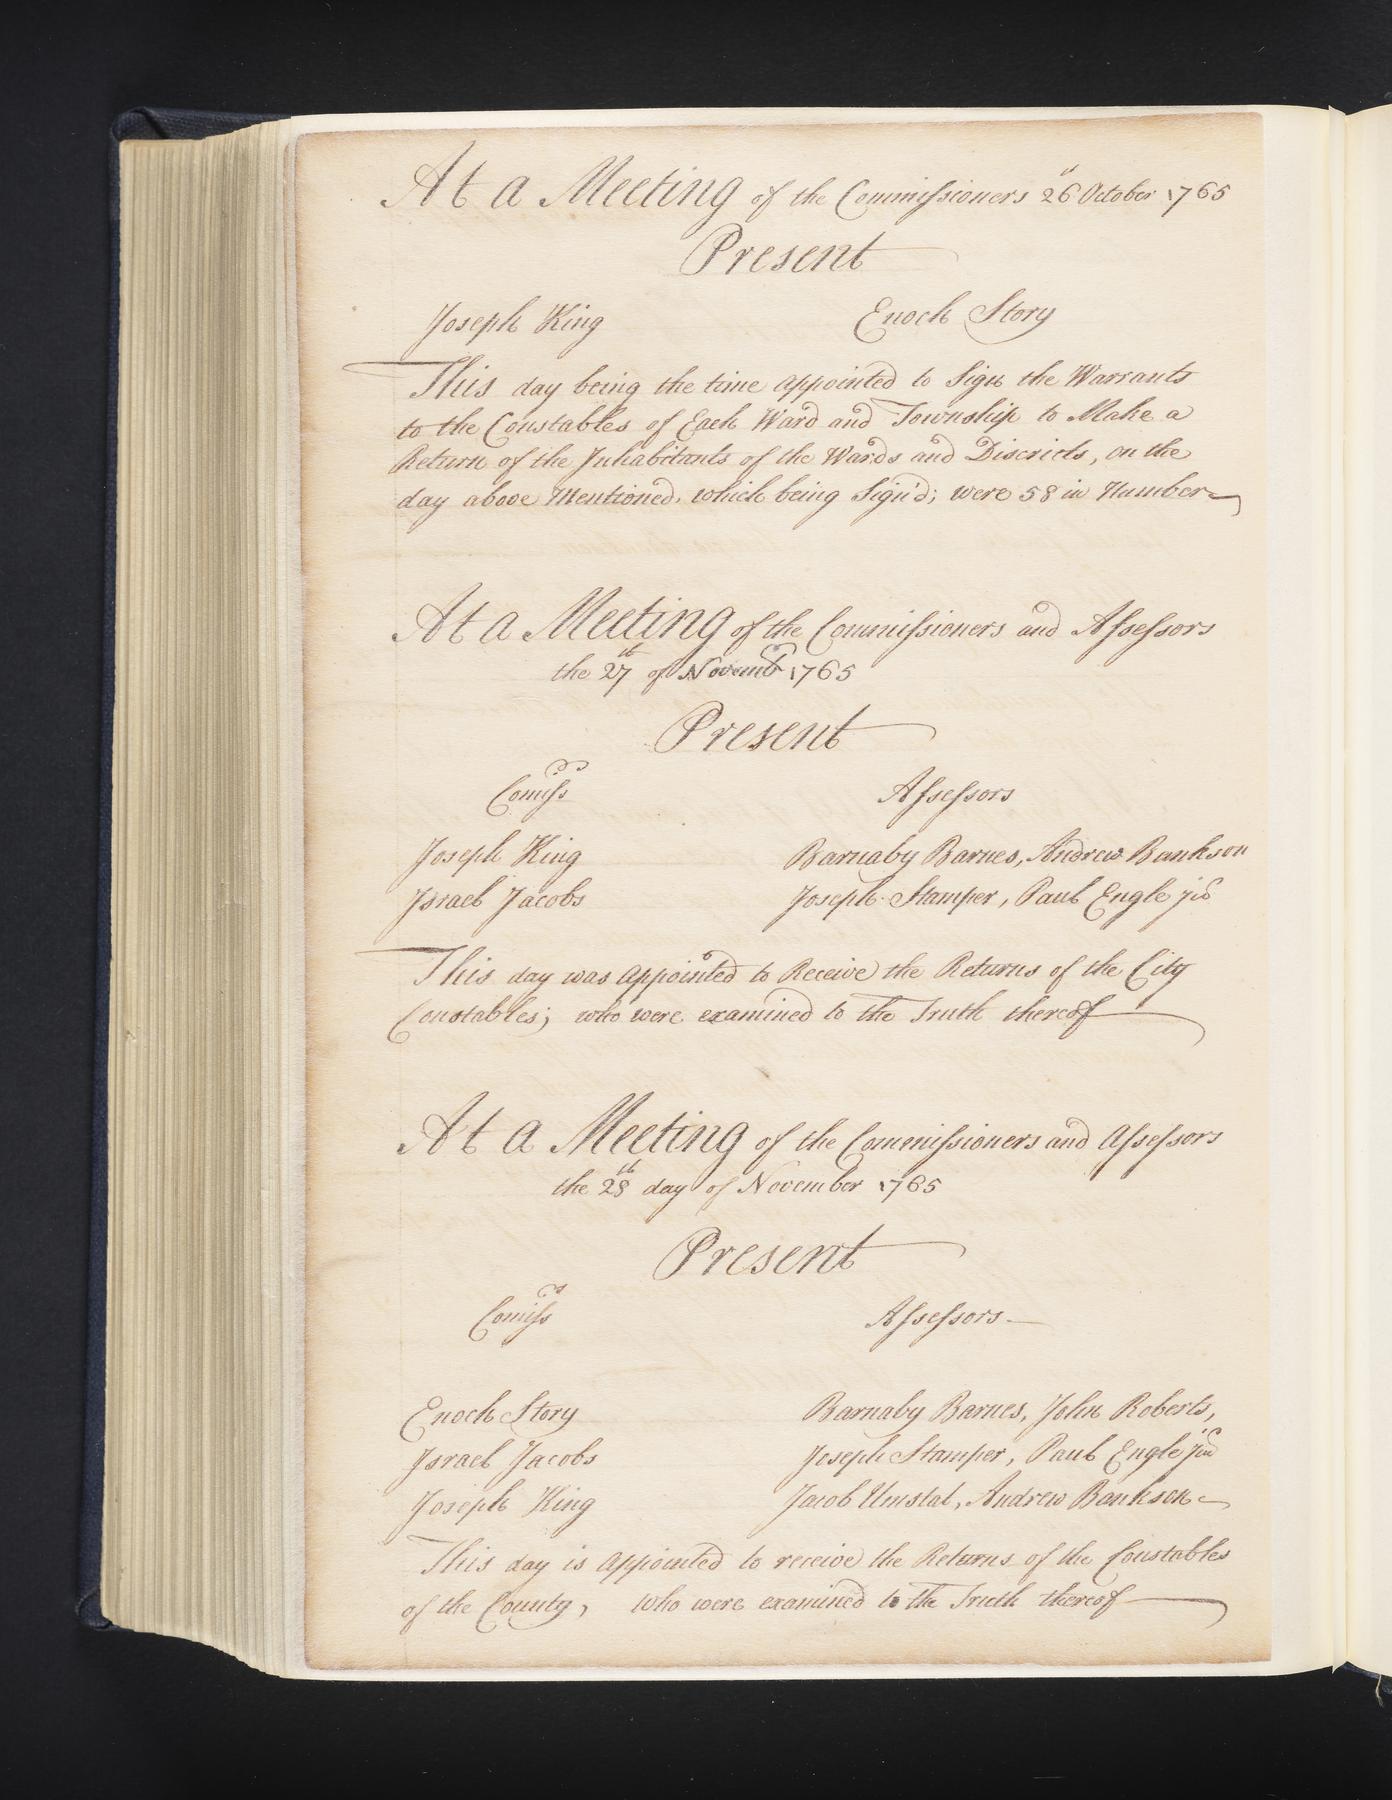 At a Meeting of the Commissioners 26th October 1765
Present
Joseph King Enoch Story
This day being the time appointed to Sign the Warrants
to the Constables of Each Ward and Township to Make a
Return of the Inhabitants of the Wards and Districts, on the
day above Mentioned, which being Sign'd; were 58 in Number
At a Meeting of the Commissioners and Assessors
the 27th of Novembr 1765
Present
Comissrs Assessors
Joseph King Barnaby Barnes, Andrew Bankson
Israel Jacobs Joseph Stamper, Paul Engle junr
This day was appointed to Receive the Returns of the City
Constables; who were examined to the Truth thereof
At a Meeting of the Commissioners and Assessors
the 28th day of November 1765
Present
Comissrs Assessors
Enoch Story Barnaby Barnes, John Roberts,
Israel Jacobs Joseph Stamper, Paul Engle junr
Joseph King Jacob Umstat, Andrew Bankson
This day is appointed to receive the Returns of the Constables
of the County, who were examined to the Truth thereof